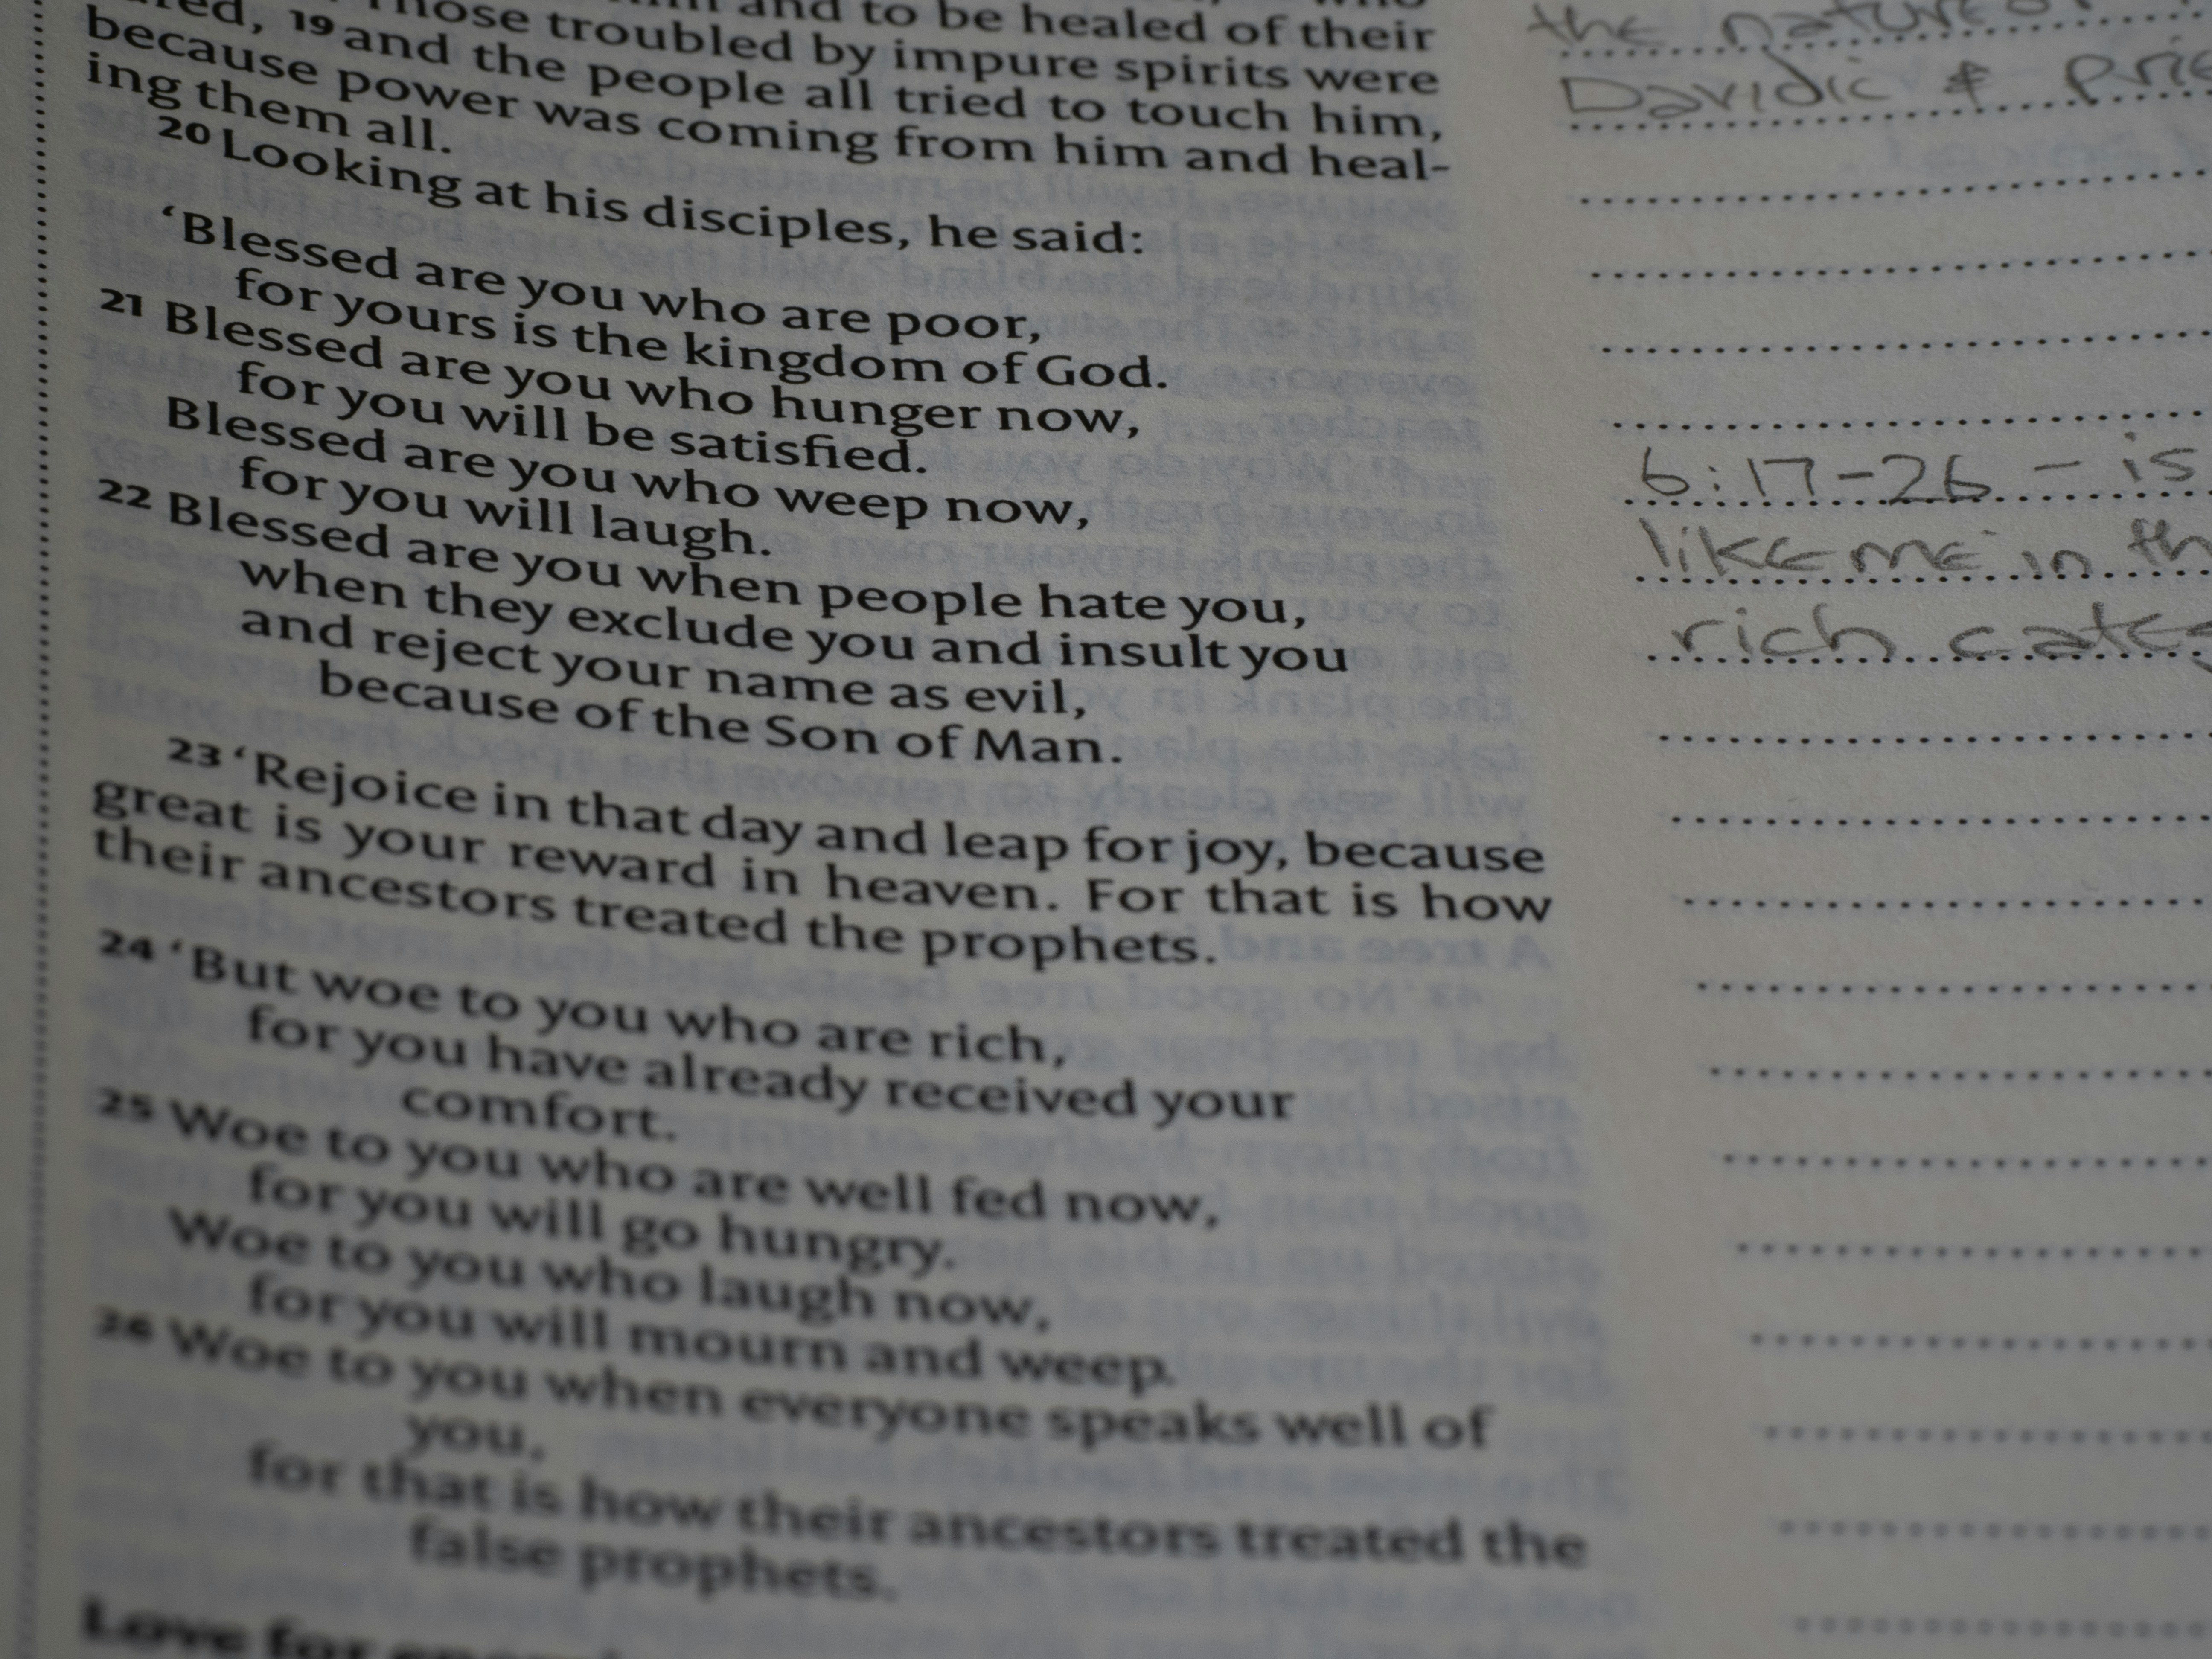 and to be healed of their
troubled by impure spirits were
19 and the people all tried to touch him,
because power was coming from him and heal-
ing them all.
20 Looking at his disciples, he said:
‘Blessed are you who are poor,
for yours is the kingdom of God.
21 Blessed are you who hunger now,
for you will be satisfied.
Blessed are you who weep now,
for you will laugh.
22 Blessed are you when people hate you,
when they exclude you and insult you
and reject your name as evil,
because of the Son of Man.
23 ‘Rejoice in that day and leap for joy, because
great is your reward in heaven. For that is how
their ancestors treated the prophets.
24 ‘But woe to you who are rich,
for you have already received your
comfort.
25 Woe to you who are well fed now,
for you will go hungry.
Woe to you who laugh now,
for you will mourn and weep.
26 Woe to you when everyone speaks well of
you,
for that is how their ancestors treated the
false prophets.
Love for
the nature
Davidic &
6:17-26 - is
like me in
rich